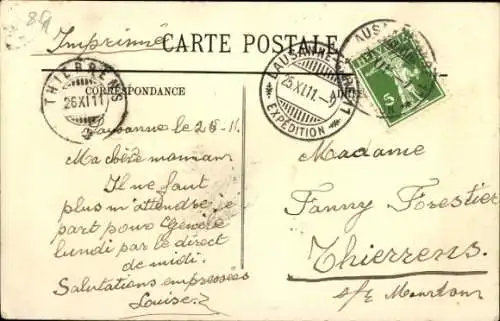 85A
Imprimé
CARTE POSTALE
THIERRENS
26 XI 11
LAUSANNE
25.XI.11.-9
EXPÉDITION
5
CORRESPONDANCE
Lausanne le 25-11.
Ma chère maman
Il ne faut
plus m'attendre je
part pour Genève
lundi par le direct
de midi.
Salutations empressées
Louise.
Madame
Fanny Forestier
Thierrens.
s/s Moudon